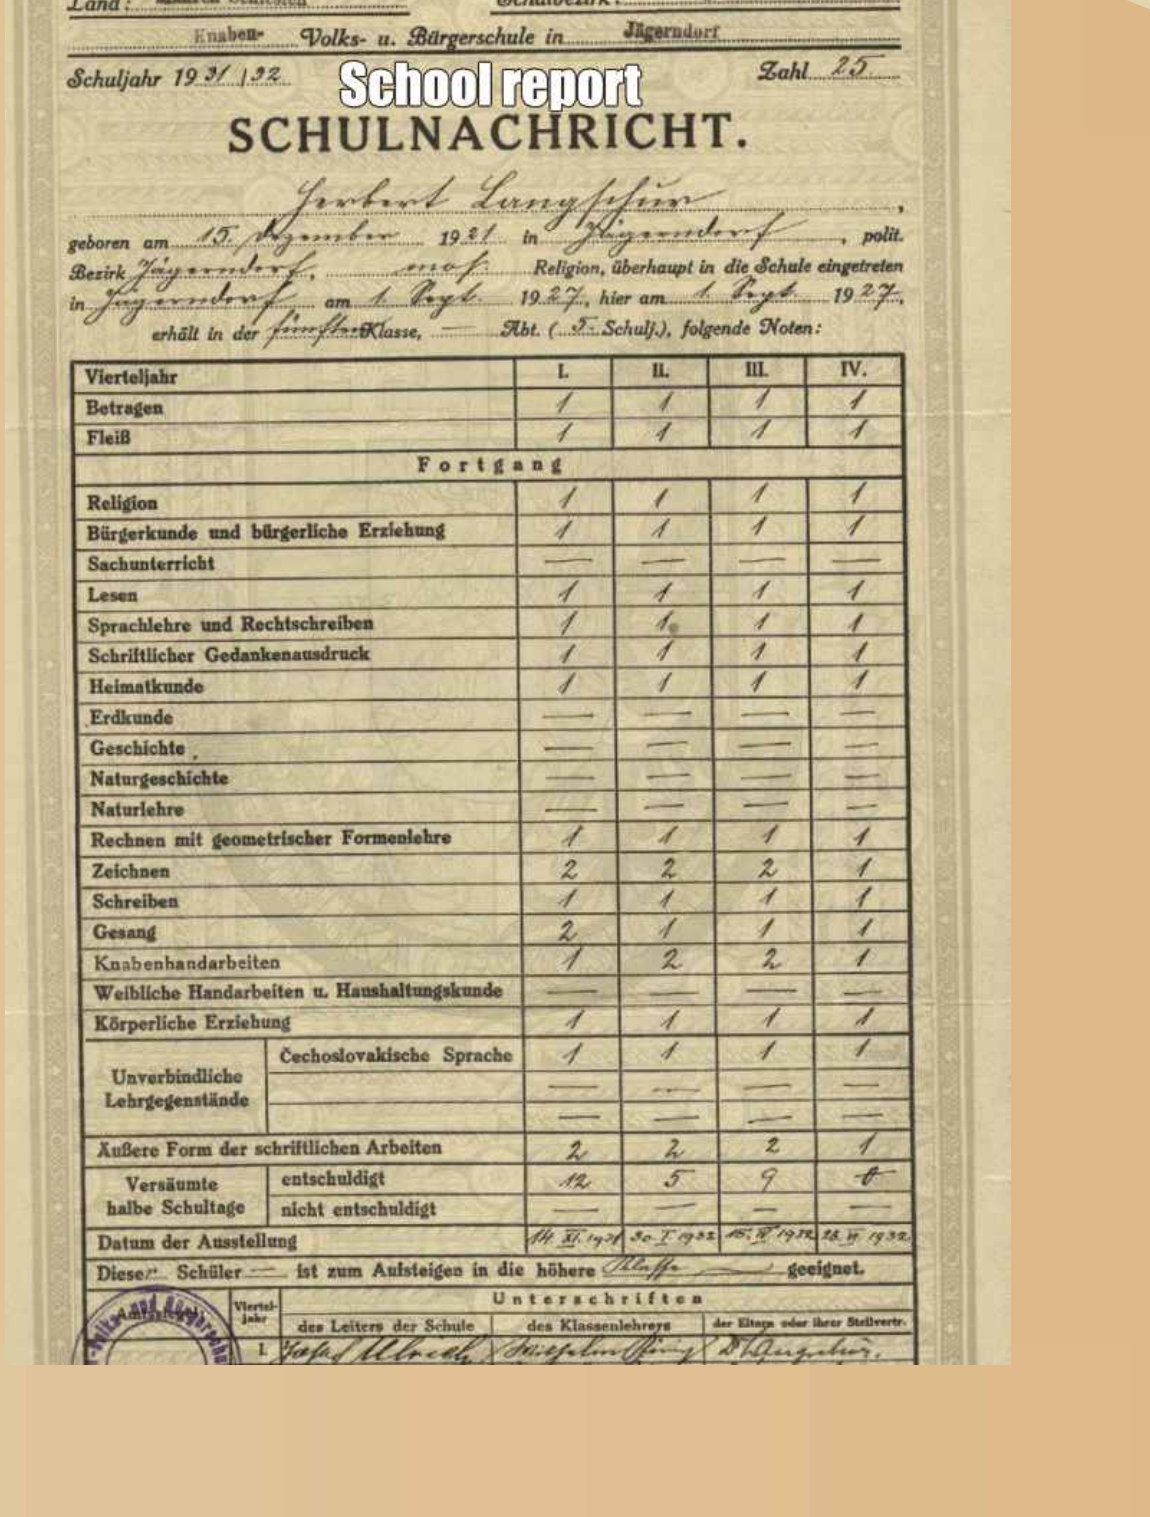 Land:
Knaben- Volks- u. Bürgerschule in Jägerndorf
Schuljahr 1931/32 Zahl 25
School report
SCHULNACHRICHT.
Herbert Langschur,
geboren am 15. Dezember 1921 in Jägerndorf, polit.
Bezirk Jägerndorf, mos. Religion, überhaupt in die Schule eingetreten
in Jägerndorf am 1. Sept. 1927, hier am 1. Sept. 1927,
erhält in der fünften Klasse, — Abt. (5. Schulj.), folgende Noten:
Vierteljahr I. II. III. IV.
Betragen 1 1 1 1
Fleiß 1 1 1 1
Fortgang
Religion 1 1 1 1
Bürgerkunde und bürgerliche Erziehung 1 1 1 1
Sachunterricht — — — —
Lesen 1 1 1 1
Sprachlehre und Rechtschreiben 1 1 1 1
Schriftlicher Gedankenausdruck 1 1 1 1
Heimatkunde 1 1 1 1
Erdkunde — — — —
Geschichte — — — —
Naturgeschichte — — — —
Naturlehre — — — —
Rechnen mit geometrischer Formenlehre 1 1 1 1
Zeichnen 2 2 2 1
Schreiben 1 1 1 1
Gesang 2 1 1 1
Knabenhandarbeiten 1 2 2 1
Weibliche Handarbeiten u. Haushaltungskunde — — — —
Körperliche Erziehung 1 1 1 1
Unverbindliche Lehrgegenstände Čechoslovakische Sprache 1 1 1 1
— — — —
— — — —
Äußere Form der schriftlichen Arbeiten 2 2 2 1
Versäumte halbe Schultage entschuldigt 12 5 9 0
nicht entschuldigt — — — —
Datum der Ausstellung 14. XI. 1931 30. I. 1932 15. IV 1932 28. VI 1932
Dieser Schüler — ist zum Aufsteigen in die höhere Klasse — geeignet.
Unterschriften
Vierteljahr des Leiters der Schule des Klassenlehrers der Eltern oder ihrer Stellvertr.
I. Josef Ulrich Wilhelm